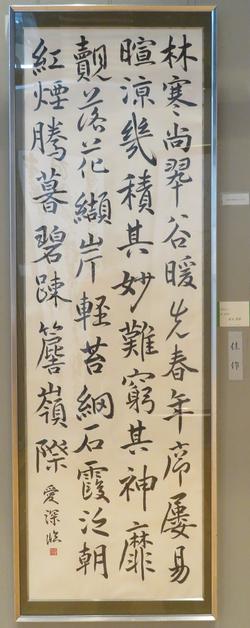 林寒尚翠谷暖先春年序屡易
暄涼幾積其妙難窮其神靡
覿落花纈岸輕苔網石霞泛朝
紅煙騰暮碧疎簷嶺際
愛深臨
佳作